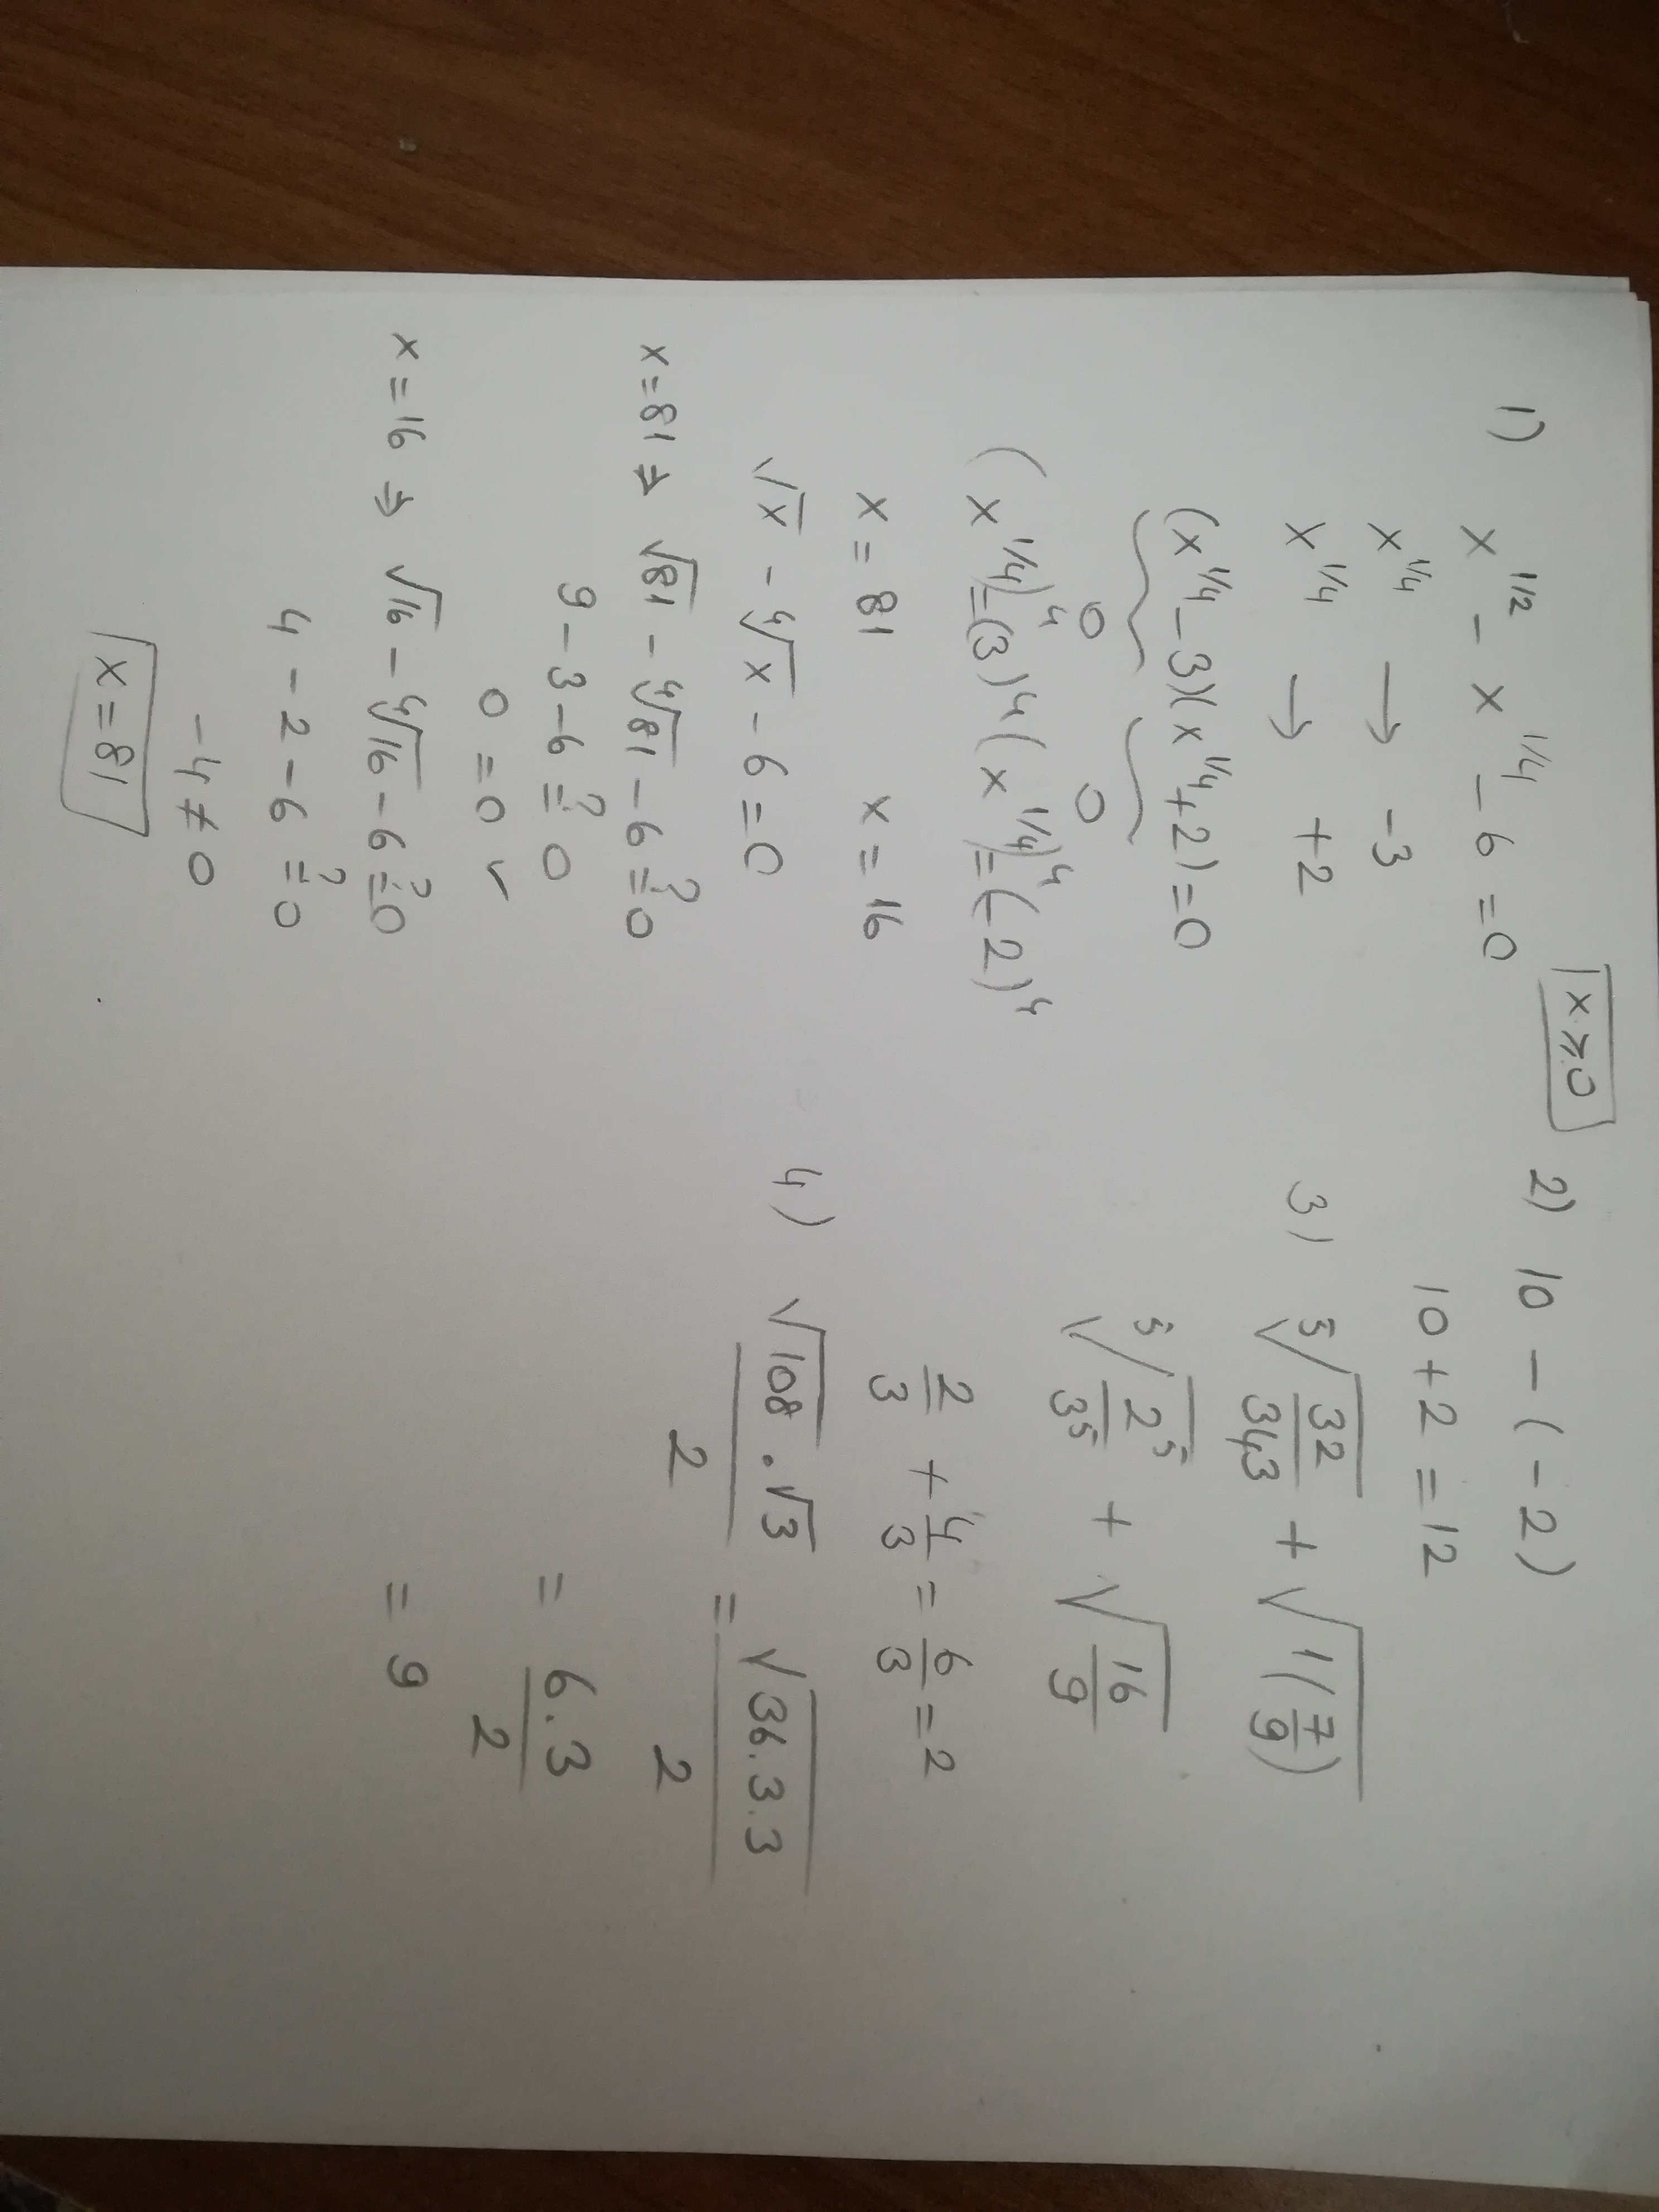 1) x^{1/2} - x^{1/4} - 6 = 0
x ⩾ 0
x^{1/4} → -3
x^{1/4} → +2
(x^{1/4} - 3)(x^{1/4} + 2) = 0
0 0
(x^{1/4})^4 = (3)^4 (x^{1/4})^4 = (-2)^4
x = 81 x = 16
√x - ⁴√x - 6 = 0
x = 81 → √81 - ⁴√81 - 6 ≟ 0
9 - 3 - 6 ≟ 0
0 = 0 ✓
x = 16 → √16 - ⁴√16 - 6 ≟ 0
4 - 2 - 6 ≟ 0
-4 ≠ 0
x = 81
2) 10 - (-2)
10 + 2 = 12
3) ⁵√(32/343) + √(1(7/9))
⁵√(2^5/3^5) + √(16/9)
2/3 + 4/3 = 6/3 = 2
4) (√108 . √3)/2 = √(36.3.3)/2
= 6.3/2
= 9